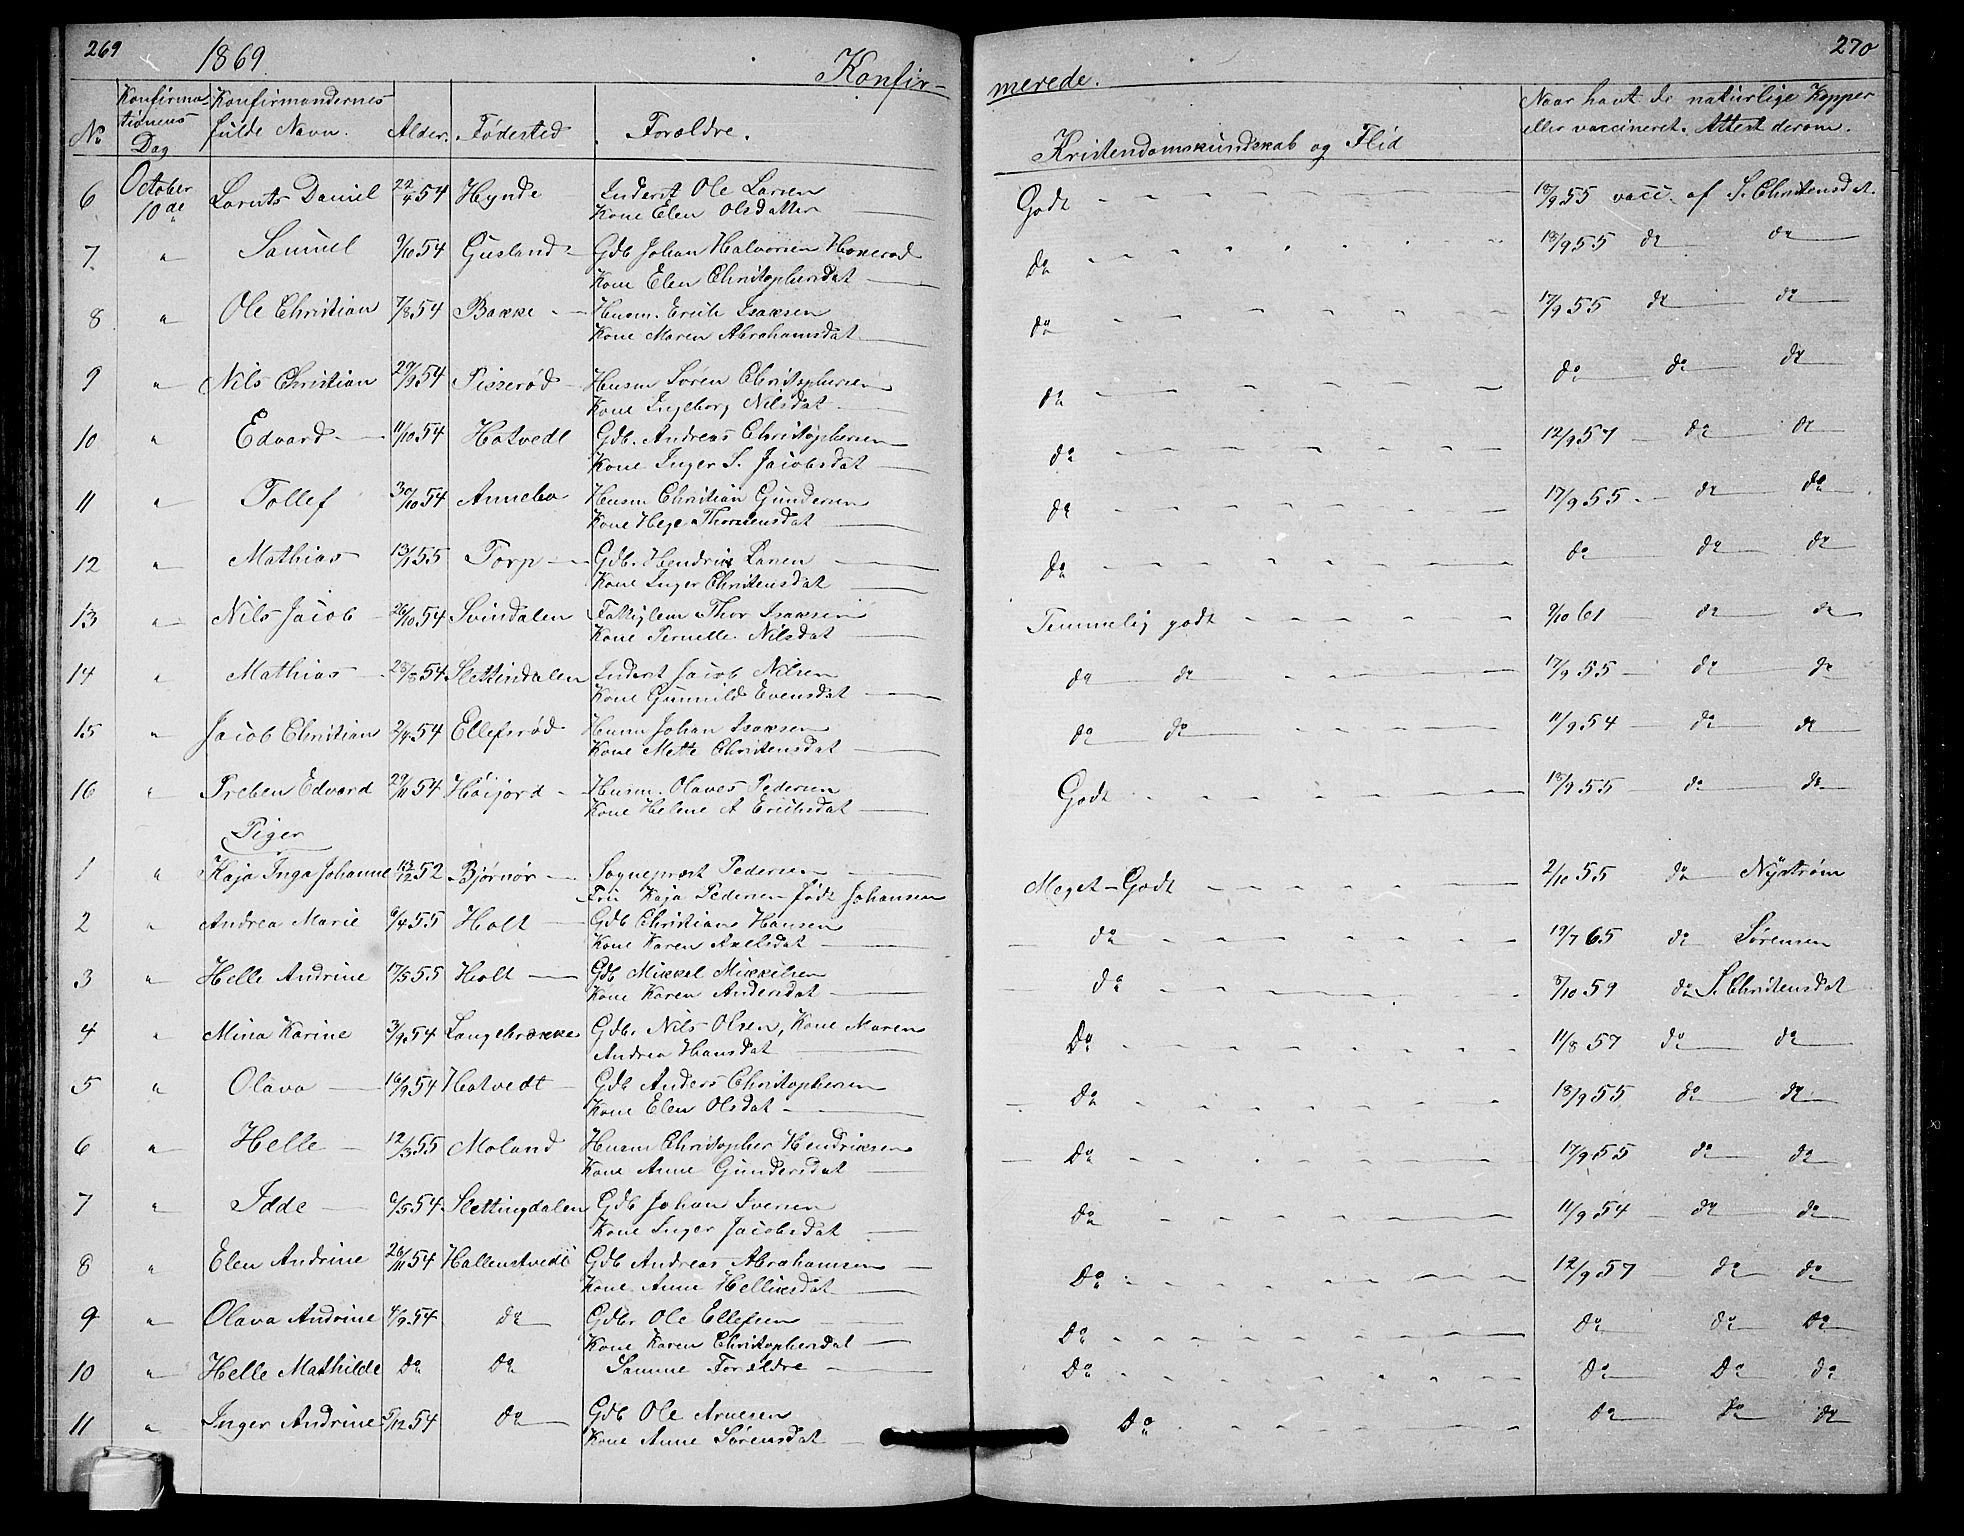 269 1869. Konfir-
merede. 270
No Konfirma-tionens Dag Konfirmandernes fulde Navn. Alder. Fødested Forældre.
Kristendomskundskab og Flid
Naar havt de naturlige Kopper
eller vaccineret. Attest derom.
6 October 10de Lornts Daniel 22/4 54 Hynde Inderst Ole Larsen Godt 18/9 55 vacc. af S. Christensdat.
Kone Elen Olsdatter
7. " Samuel 9/10 54 Gusland Gdb Johan Halvorsen Haxerød do 18/9 55 do do
Kone Elen Christophersdat
8 " Ole Christian 7/8 54 Bakke Husm. Erich Isaksen do 17/9 55 do do
Kone Maren Abrahamsdat
9 " Nils Christian 29/9 54 Pisserød Husm Søren Christophersen do do do do
Kone Ingeborg Nilsdat
10 " Edvard 11/10 54 Hotvedt Gdb. Andreas Christophersen do 12/9 57 do do
Kone Inger S. Jacobsdat
11 " Tollef 30/10 54 Annebo Husm Christian Gundersen do 17/9 55 do do
Kone Hege Thorsensdat
12 " Mathias 13/1 55 Torp Gdb. Hendrik Larsen do do do do
Kone Inger Christensdat
13 " Nils Jacob 26/10 54 Svindalen Fattiglem Thor Isaksen Temmelig godt 9/10 61 do do
Kone Pernelle Nilsdat
14 " Mathias 28/8 54 Slettindalen Inderst Jacob Nilsen do do 17/9 55 do do
Kone Gunnild Evensdat
15 " Jacob Christian 2/4 54 Ellefsrød Husm Johan Isaksen do do 11/9 54 do do
Kone Mette Christensdat
16 " Preben Edvard 29/11 54 Høijord Husm. Olaves Pedersen Godt 18/9 55 do do
Kone Helene A Erichsdat
Piger
1 " Kaja Inga Johanne 13/12 52 Bjørnør Sognepræst Pedersen Meget Godt 2/10 55 do Nystrøm
Fru Kaja Pedersen født Johansen
2 " Andrea Marie 6/4 55 Holt Gdb Christian Hansen do 19/7 65 do Sørensen
Kone Karen Axelsdat
3 " Helle Andrine 17/5 55 Holt Gdb Mikkel Mikkelsen do 8/10 59 do S. Christensdat
Kone Karen Andersdat
4 " Mina Karine 3/9 54 Langebrække Gdb. Nils Olsen, Kone Maren Do 11/8 57 do do
Andrea Hansdat
5 " Olava 16/9 54 Hotvedt Gdb Anders Christophersen Do 18/9 55 do do
Kone Elen Olsdat
6 " Helle 12/3 55 Moland Husm Christopher Hendriksen Do 17/9 55 do do
Kone Anne Gundersdat
7 " Idde 6/5 54 Slettingdalen Gdb Johan Iversen Do 11/9 54 do do
Kone Inger Jacobsdat
8 " Elen Andrine 26/11 54 Hallenstvedt Gdb Andreas Abrahamsen Do 12/9 57 do do
Kone Anne Helliksdat
9 " Olava Andrine 4/9 54 do Gdb. Ole Ellefsen Do Do do Do
Kone Karen Christophersdat
10 " Helle Mathilde Do Do Samme Forældre Do Do Do do
11 " Inger Andrine 5/12 54 do Gdb Ole Arnesen Do Do do do
Kone Anne Sørensdat